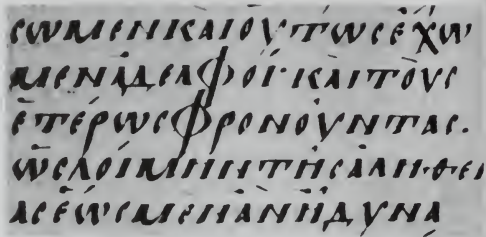 ϹΩΜΕΝΚΑΙΟΥΤΩϹΕΧΩ
ΜΕΝΑΔΕΛΦΟΙ·ΚΑΙΤΟΥϹ
ΕΤΕΡΩϹΦΡΟΝΟΥΝΤΑϹ.
ΩϹΛΟΙΜΗΝΤΗϹΑΛΗΘΕΙ
ΑϹΕΩϹΜΕΝΑΝΗΔΥΝΑ